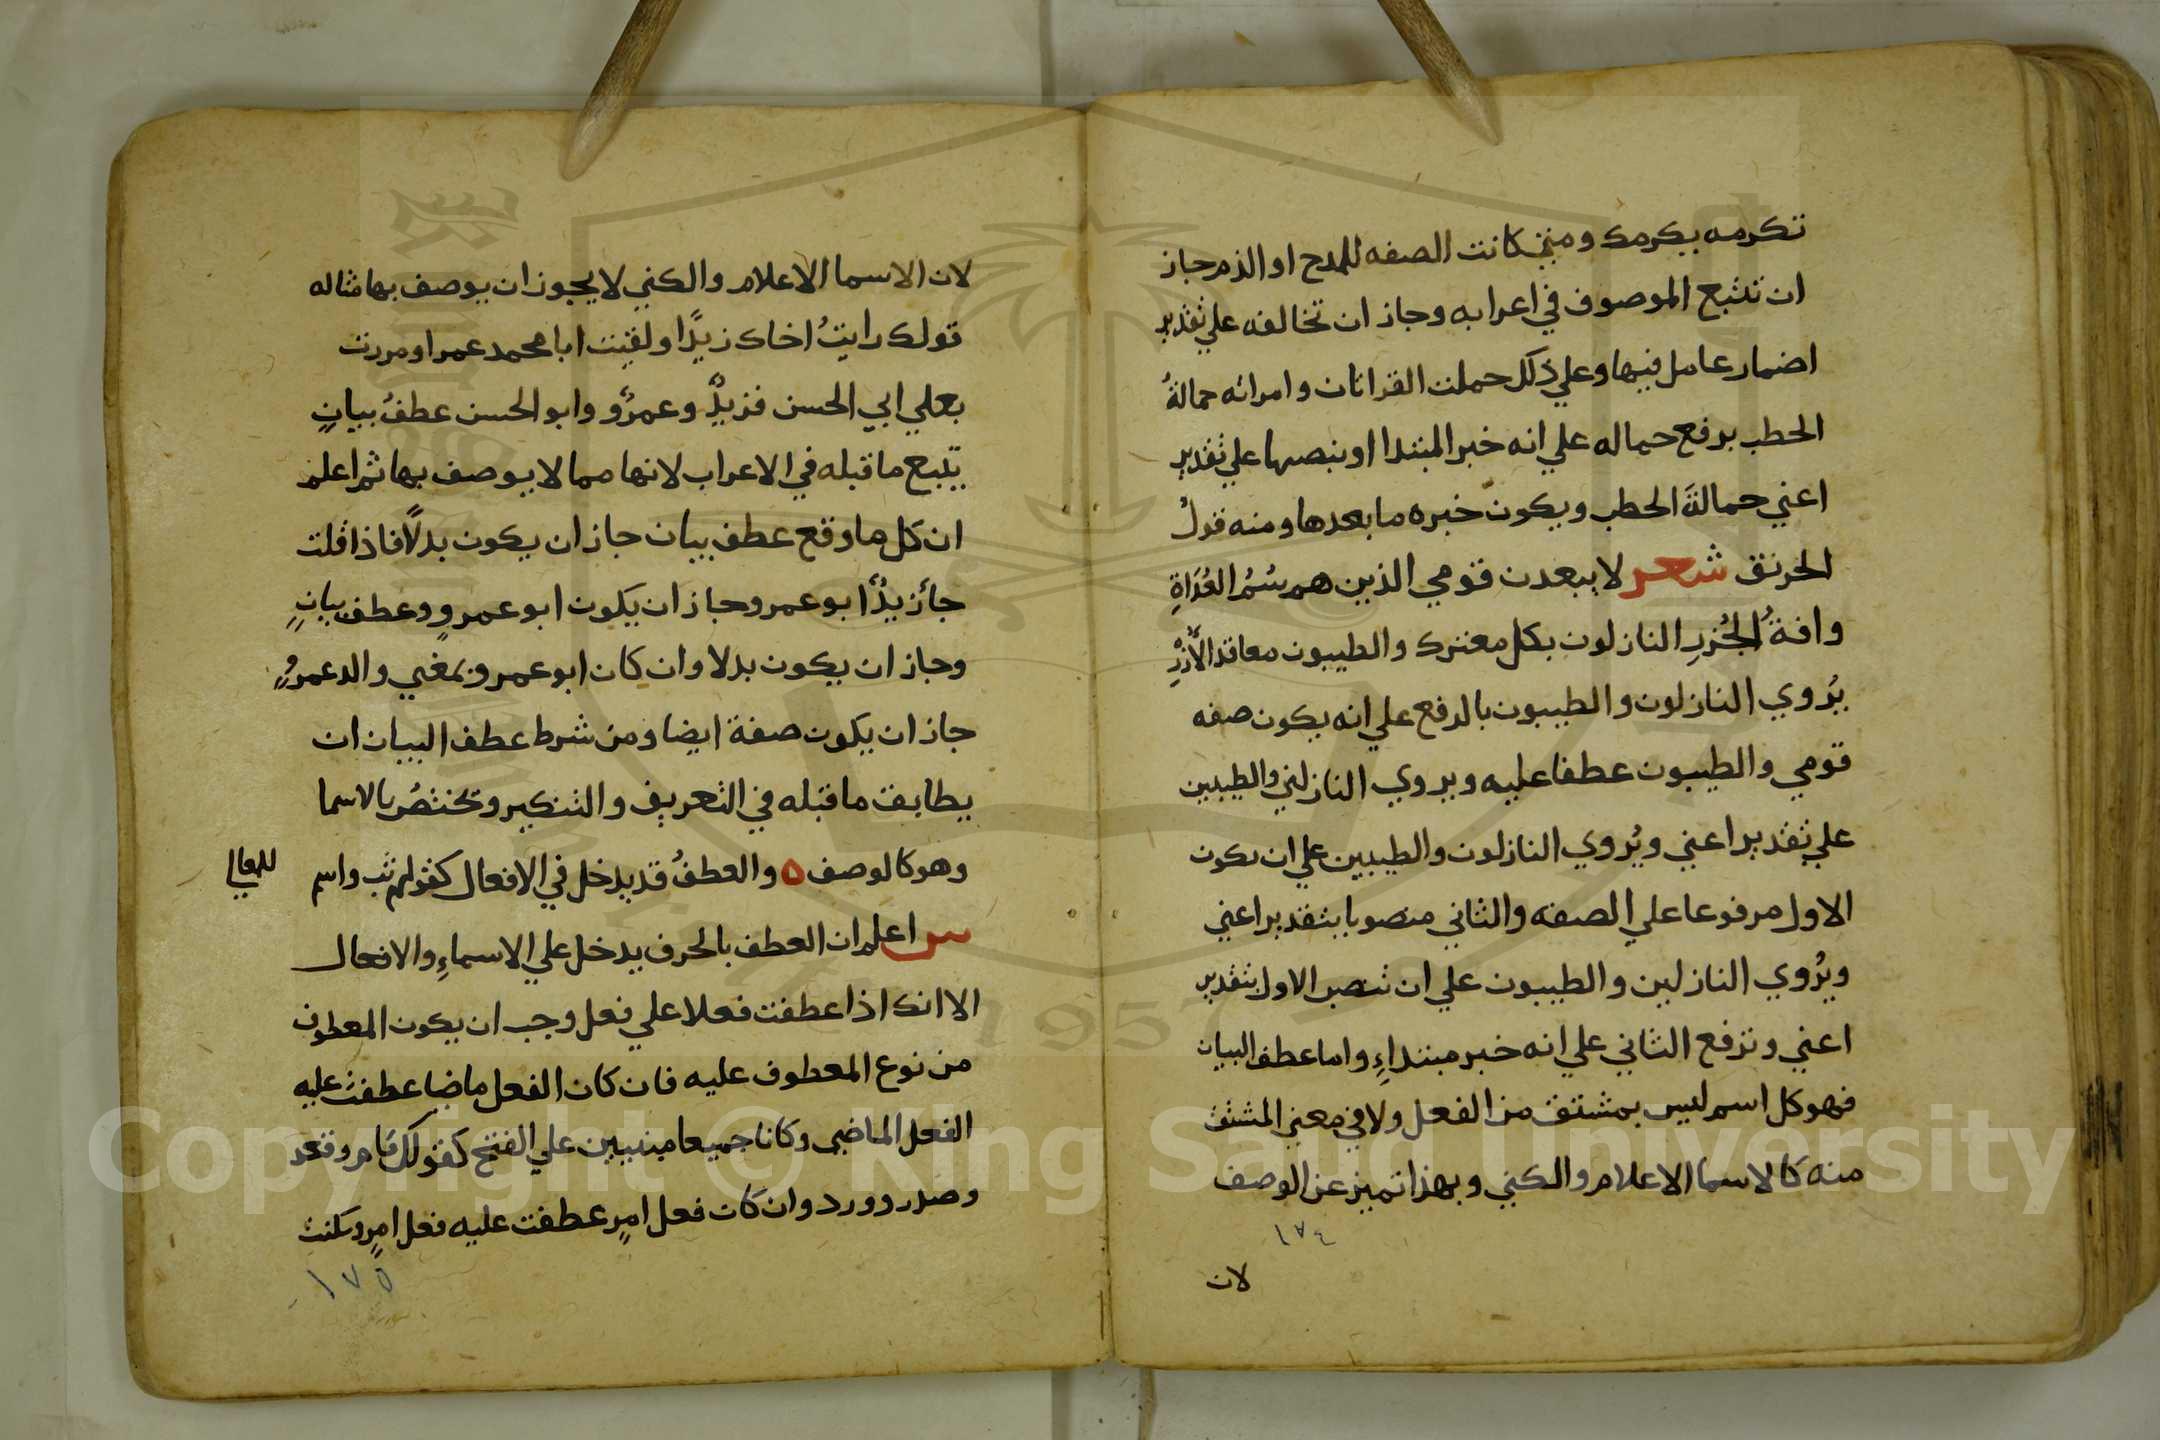 تكرمه يكرمك ومتي كانت الصفه للمدح او الذم جاز
ان تتبع الموصوف في اعرابه وجاز ان تخالفه علي تقدير
اضمار عامل فيها وعلي ذلك حملت القراتان وامراته حمالةُ
الحطب برفع حماله علي انه خبر المبتدا او بنصبها علي تقدير
اعني حمالةَ الحطب ويكون خبره ما بعدها ومنه قولُ
الخرنق شعر لا يبعدن قومي الذين هم سُمُ العُدَاةِ
وافةُ الجُزرِ النازلون بكل معترك والطيبون معاقد الأُزْرِ
يُروي النازلون والطيبون بالرفع علي انه يكون صفه
قومي والطيبون عطفا عليه ويروي النازلين والطيبين
علي تقدير اعني ويُروي النازلون والطيبين علي ان يكون
الاول مرفوعا علي الصفه والثاني منصوبا بتقدير اعني
ويُروي النازلين والطيبون علي ان تنصب الاول بتقدير
اعني وترفع الثاني علي انه خبر مبتداءٍ واما عطف البيان
فهو كل اسم ليس بمشتق من الفعل ولا في معني المشتق
منه كالاسما الاعلام والكني وبهذا تميز عن الوصف
١٧٤
لان
لان الاسما الاعلام والكني لا يجوز ان يوصف بها مثاله
قولك رايتُ اخاك زيدًا ولقيت ابا محمد عمرا ومررت
بعلي ابي الحسن فزيدٌ وعمرٌو وابو الحسن عطفُ بيانٍ
يتبع ما قبله في الاعراب لانها مما لا يوصف بها ثم اعلم
ان كل ما وقع عطف بيان جاز ان يكون بدلًا فاذا قلت
جأ زيدٌ ابو عمرو جاز ان يكون ابو عمرٍو عطف بيانٍ
وجاز ان يكون بدلا وان كان ابو عمرو بمعني والد عمرٍو
جاز ان يكون صفة ايضا ومن شرط عطف البيان ان
يطابق ما قبله في التعريف والتنكير وتختصُ بالاسما
وهو كالوصف ٥ والعطفُ قد يدخل في الافعال كقولهم ثب واسم
للمعالي
س اعلم ان العطف بالحرف يدخل علي الاسماءِ والافعال
الا انك اذا عطفت فعلا علي فعل وجب ان يكون المعطوف
من نوع المعطوف عليه فان كان الفعل ماضيا عطفت عليه
الفعل الماضي وكانا جميعا مبنيين علي الفتح كقولك قام وقعد
وصدر وورد وان كان فعل امرٍ عطفت عليه فعل امرٍ وسكنت
١٧٥